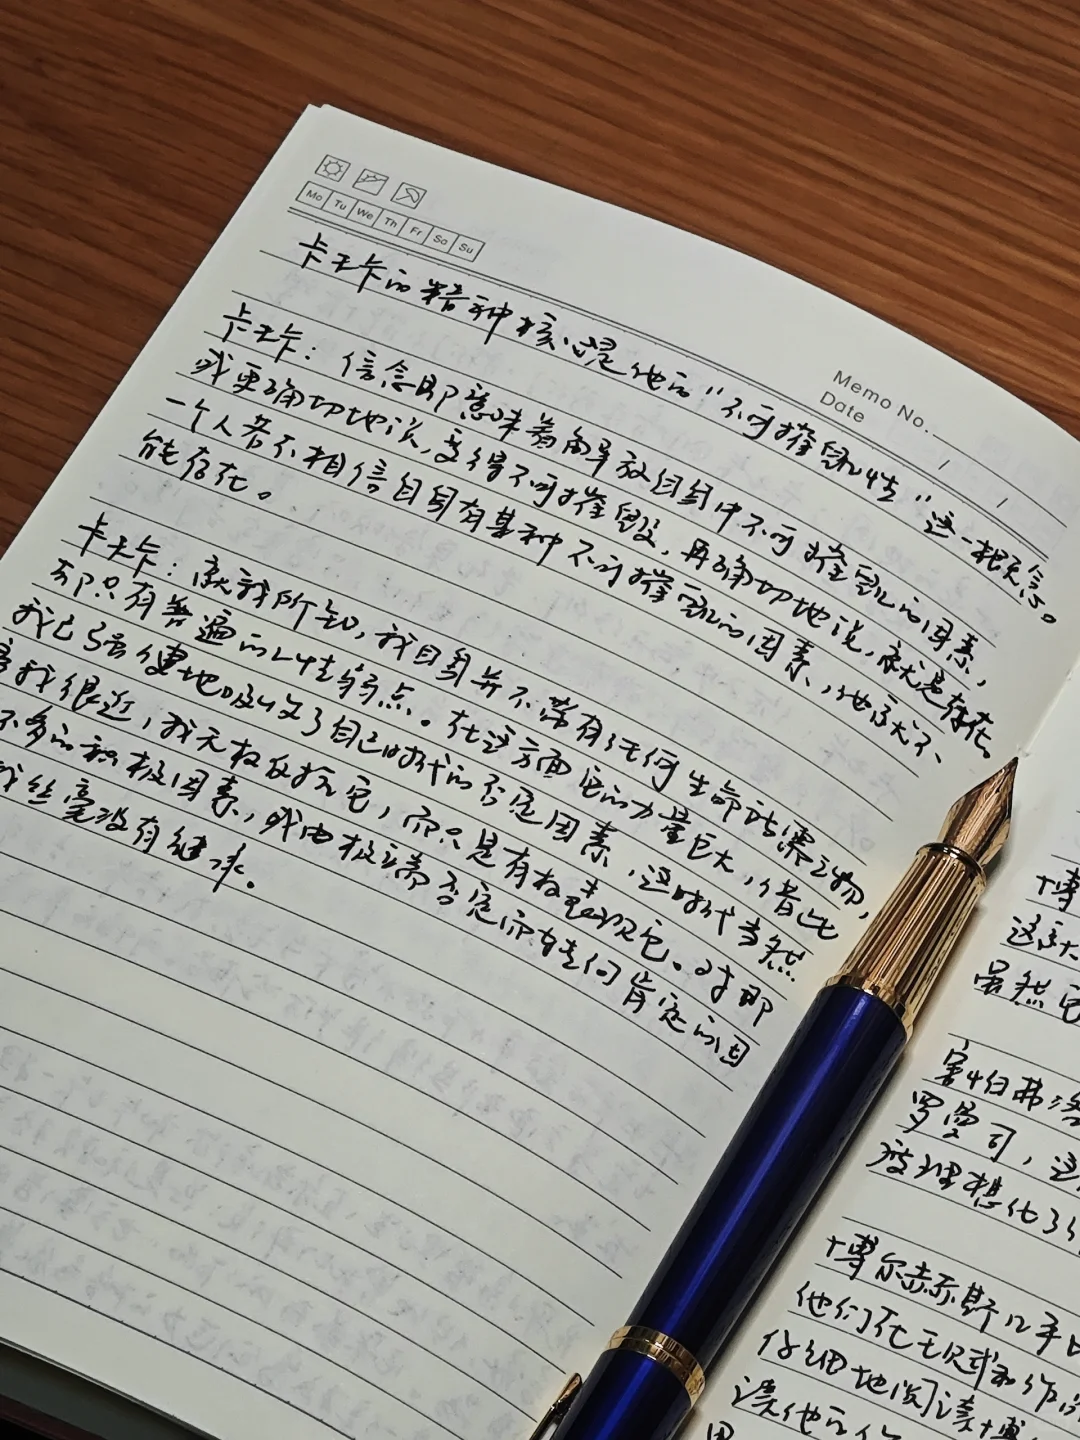 Mo Tu We Th Fr Sa Su
Memo No.
Date
卡夫卡的精神核心是他的“不可摧毁性”这一概念。
卡夫卡：信念即意味着解放自身中不可摧毁的因素，
或更确切地说，变得不可摧毁，再确切地说，就是存在。
一个人若不相信自身有某种不可摧毁的因素，他就不
能存在。
卡夫卡：就我所知，我自身并不带有任何生命所需之物，
而只有普遍的人性弱点。在这方面它的力量巨大，借此
我已强健地吸收了自己时代的否定因素，这时代当然
离我很近，我无权反抗它，而只是有权表现它。对那
不多的积极因素，或由极端否定而转为肯定的因
我丝毫没有继承。
博
这就
虽然它
害怕弗洛
罗曼司，这
被理想化了
博尔赫斯几乎
他们在
仔细地阅读博
读他的作